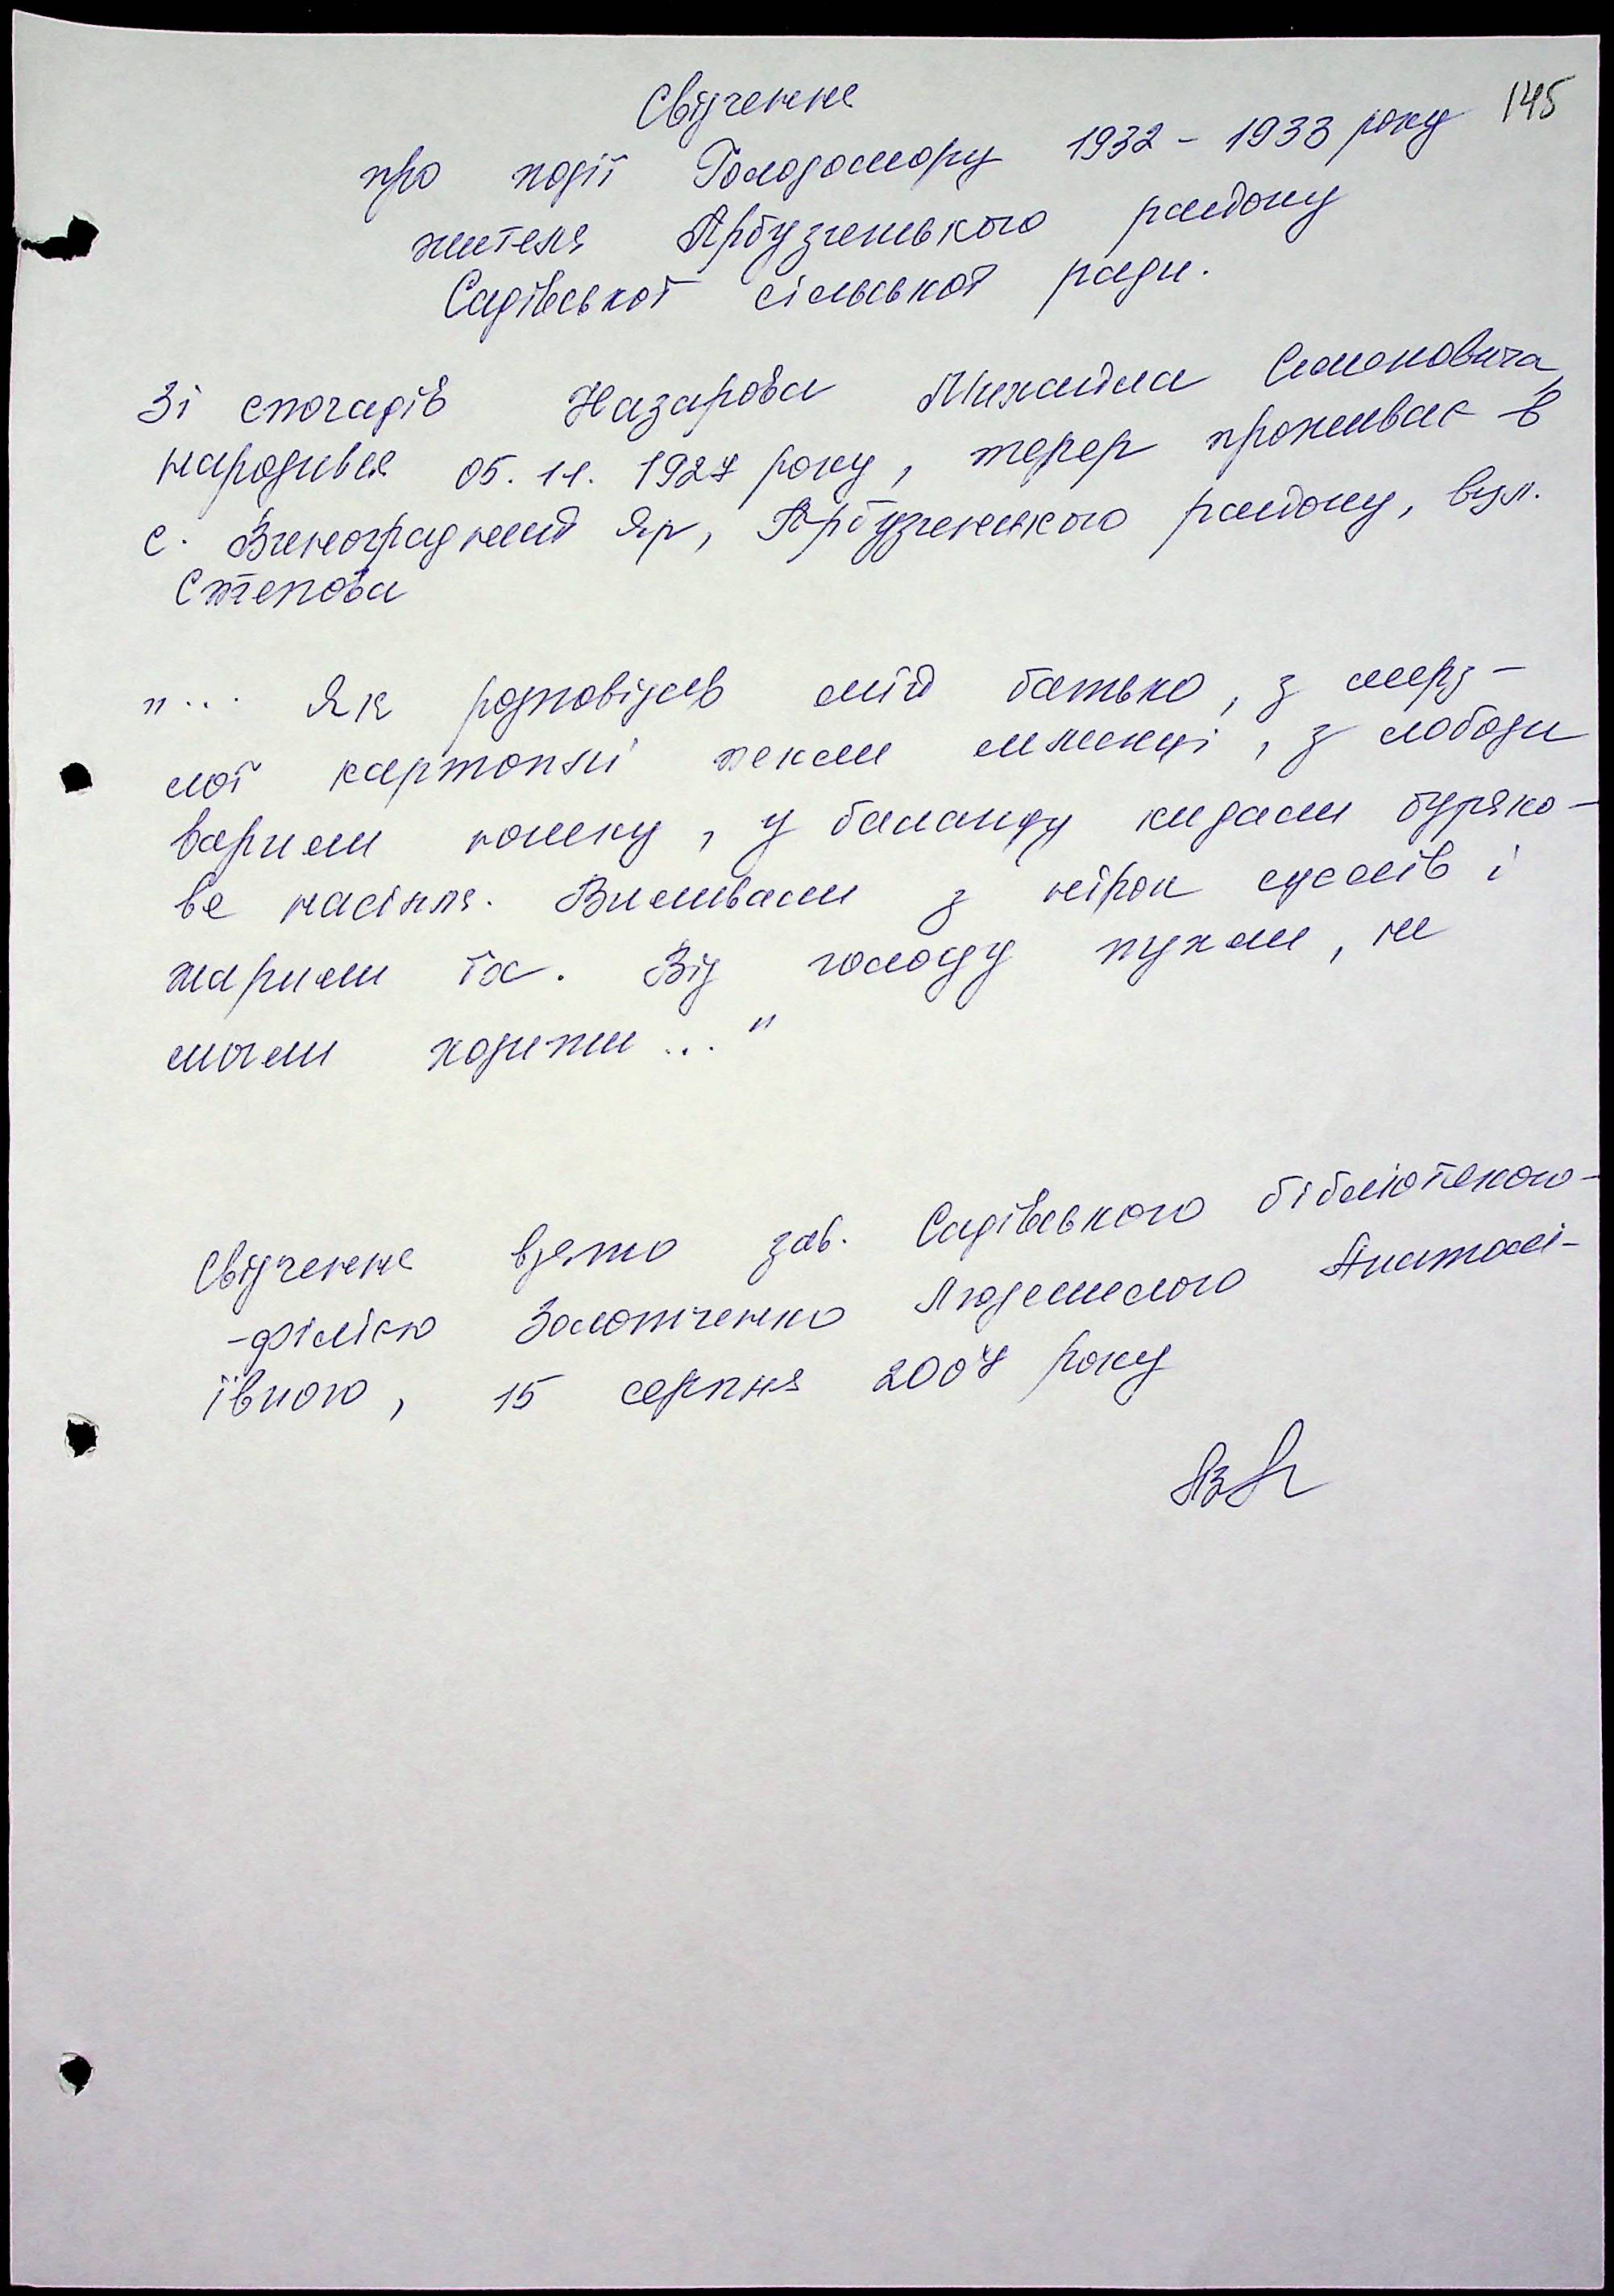 145
Свідчення
про події Голодомору 1932 - 1933 року
жителя Арбузинського району
Садівської сільської ради.
Зі спогадів Назарова Михайла Семеновича,
народився 05. 11. 1927 року, тепер проживає в
с. Виноградний Яр, Арбузинського району, вул.
Степова
"... Як розповідав мій батько, з мерз-
лої картоплі пекли млинці, з лободи
варили юшку, у баланду кидали буряко-
ве насіння. Виливали з нірок суслів і
жарили їх. Від голоду пухли, не
могли ходити..."
Свідчення взято зав. Садівською бібліотекою-
-філією Золотченко Людмилою Анатолі-
ївною, 15 серпня 2007 року